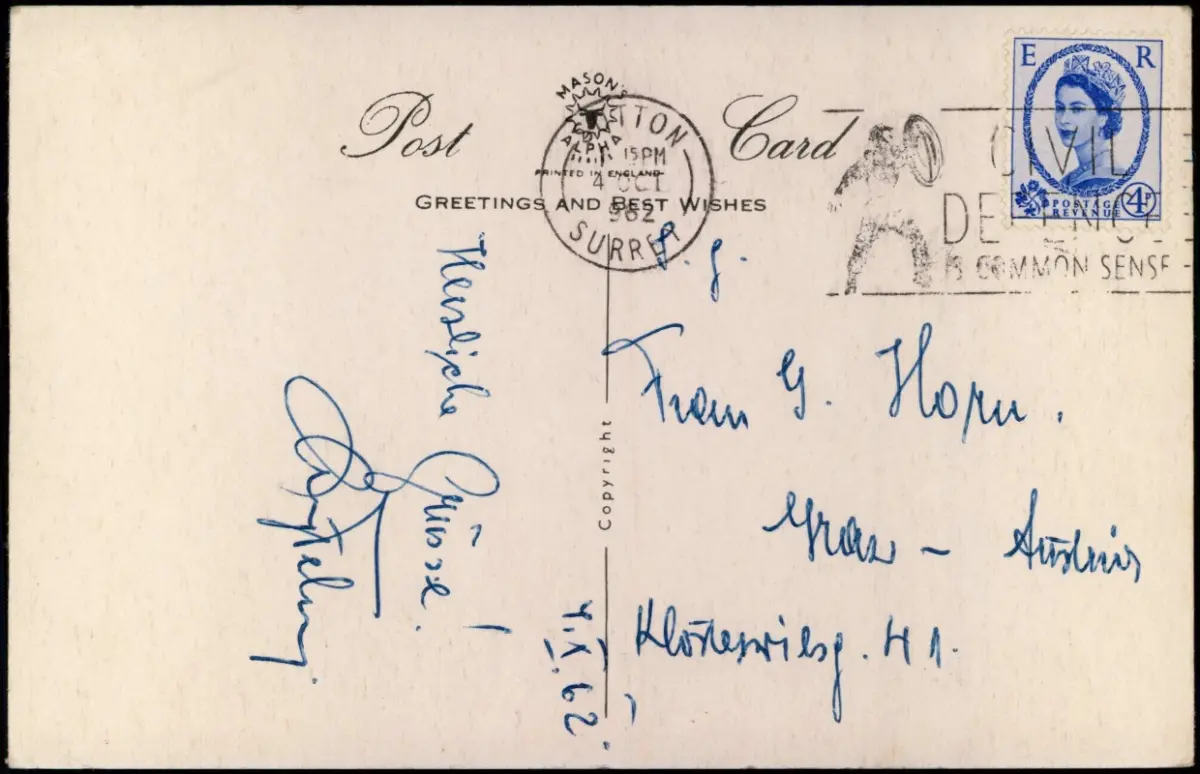 Post Card
MASON'S
ALPHA
PRINTED IN ENGLAND
GREETINGS AND BEST WISHES
SUTTON
15PM
4 OCT
1962
SURREY
CIVIL
DEFENCE
IS COMMON SENSE
E R
POSTAGE
REVENUE
4D
Copyright
Herzliche
Grüsse!
4.X.62
Frau G. Horn.
Graz – Austria
Klosterwiesg. 41.